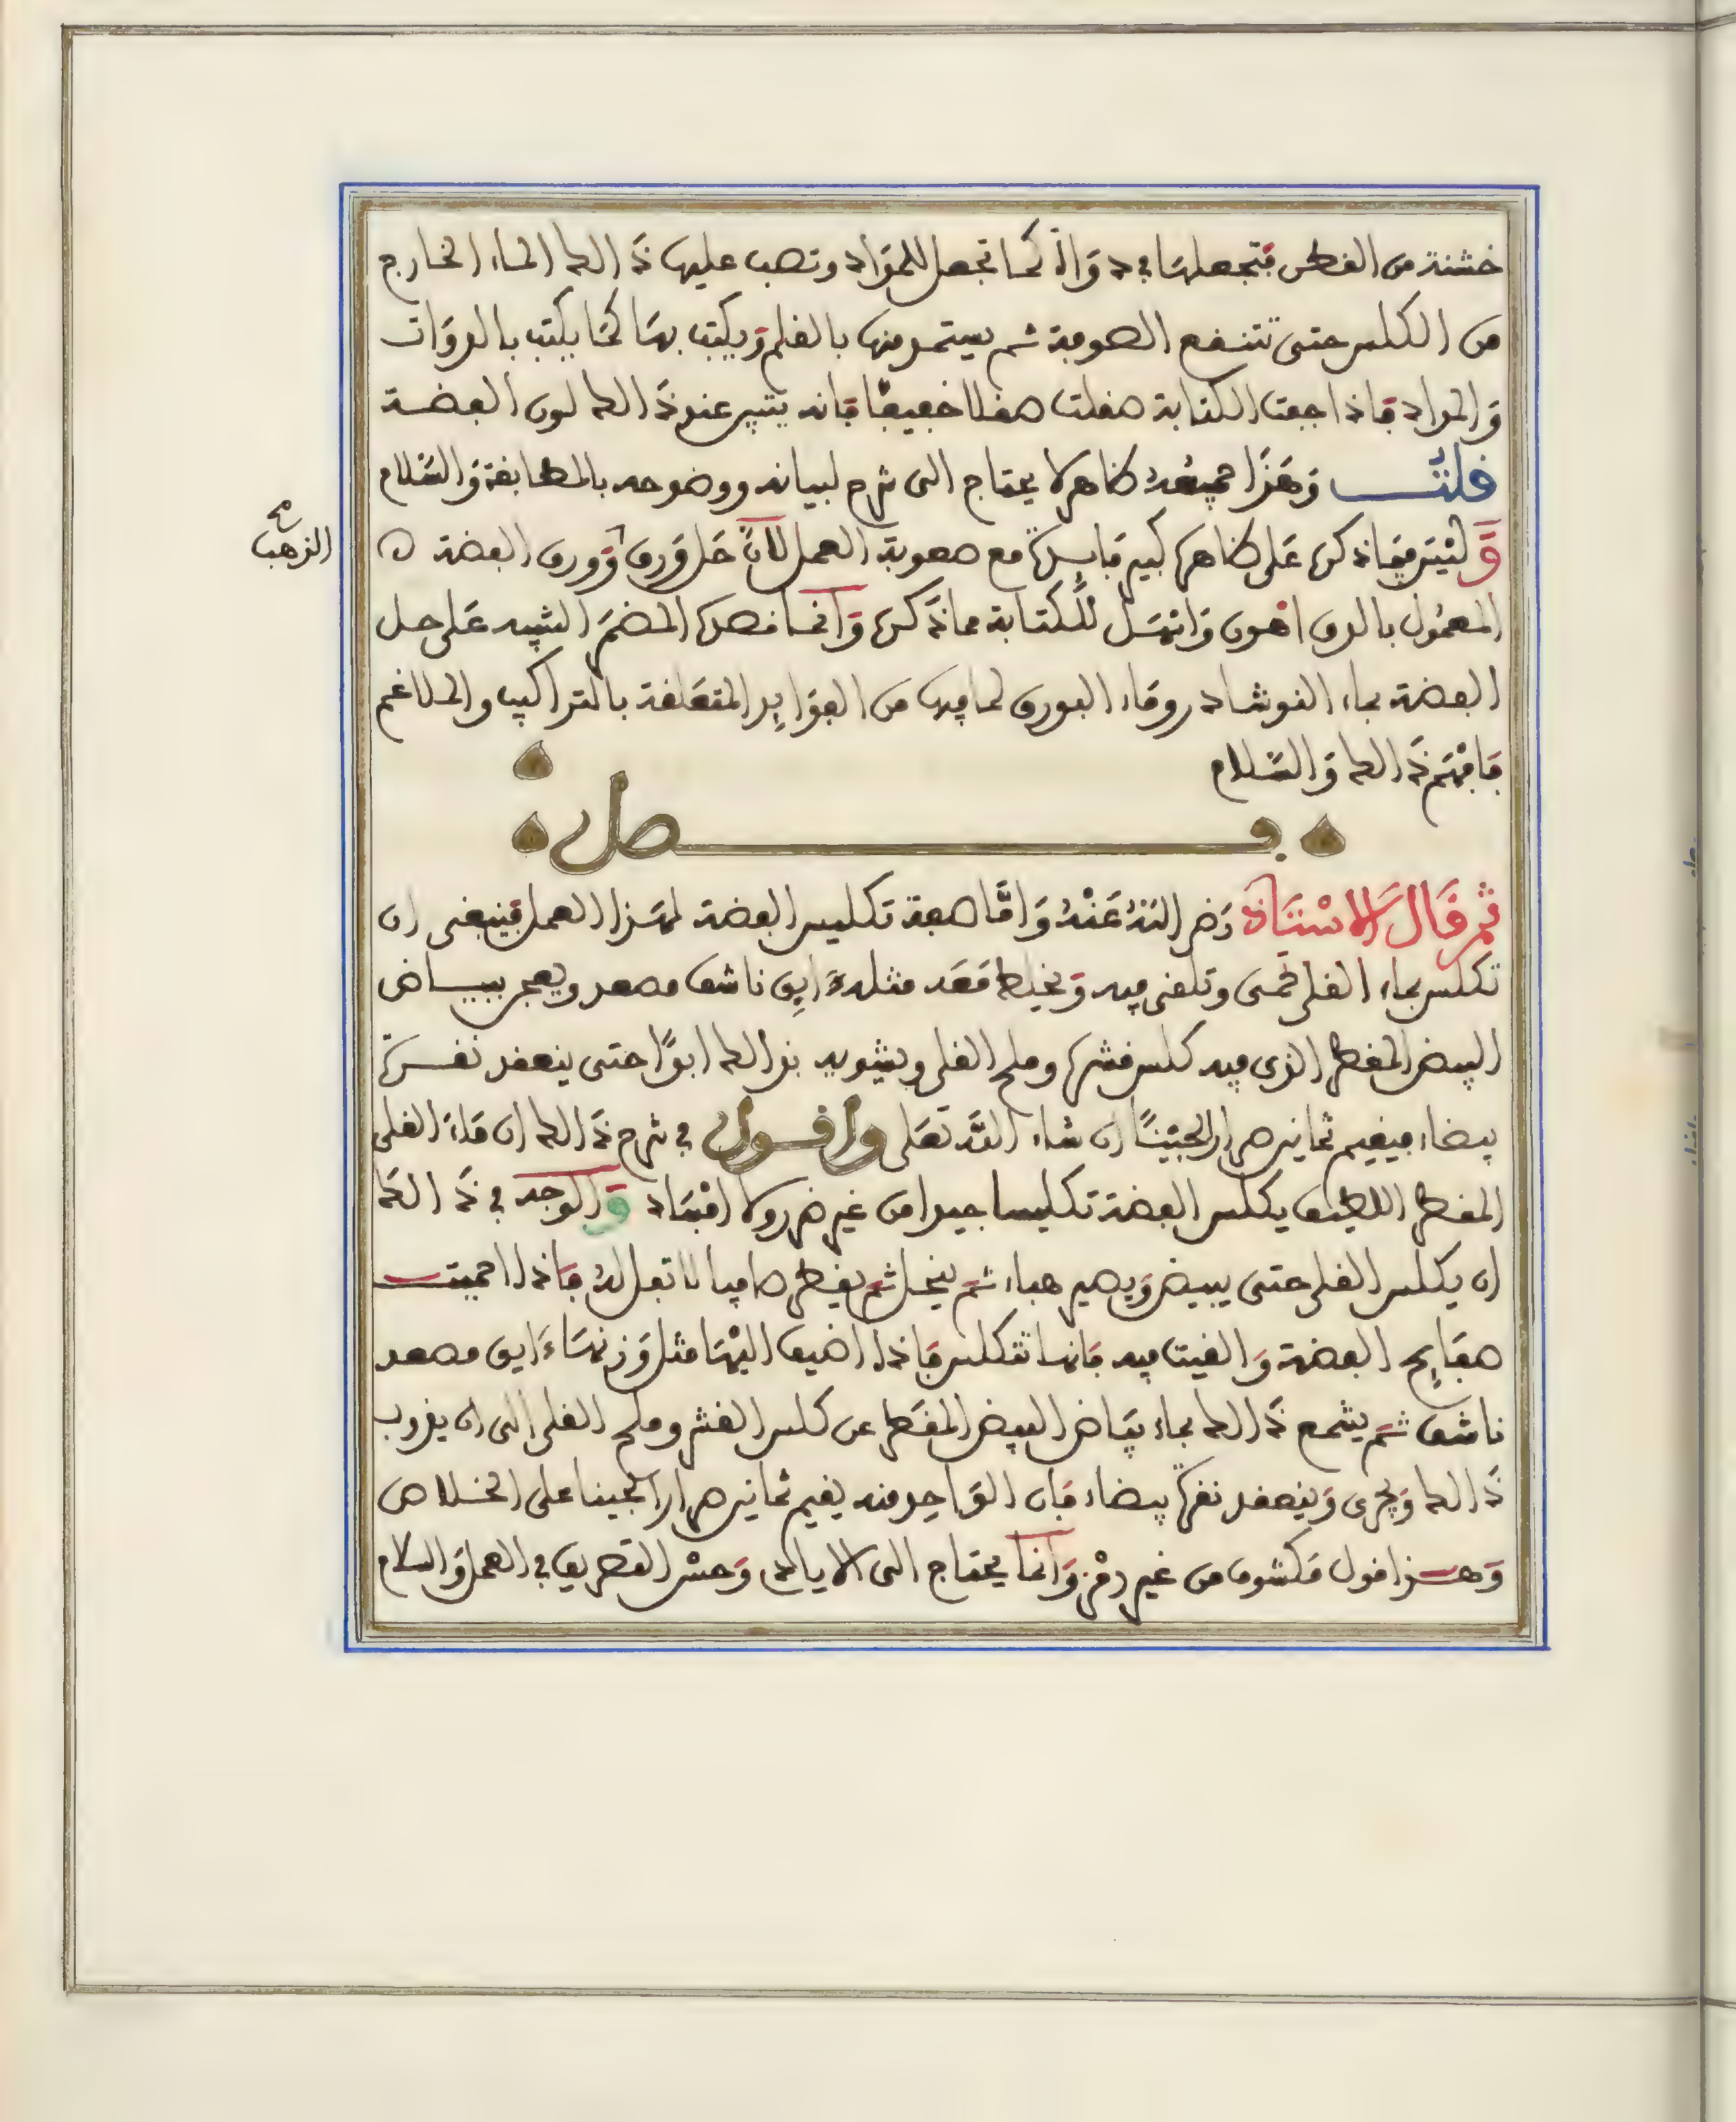 خشنة من القطن فتجعلها في دواة كما تجعل للمداد وتصب عليها ذالك الماء الخارج
من الكلس حتى تتنقع الصوفة ثم يستمد منها بالقلم ويكتب بها كما يكتب بالدوات
والمداد فاذا جفت الكتابة صقلت صقلا خفيفا فانه يتبين عند ذالك لون الفضة
قلت وهذا جميعه ظاهر لا يحتاج الى شرح لبيانه ووضوحه بالمطابقة والسلام
وليس فيما ذكر على ظاهره كبير فايدة مع صعوبة العمل لان حل ورق وورق الفضة
الذهب صح
المعمول بالدق اهون واسهل للكتابة مما ذكره وانما قصده المضم التنبيه على حل
الفضة بماء النوشادر وماء البورق لما فيها من الفوايد المتعلقة بالتراكيب والملاغم
فافهم ذالك والسلام
فصل
ثم قال الاستاذ رضي الله عنه واما صفة تكليس الفضة لهذا العمل فينبغي ان
تكلس بماء القلي تحمى وتلقى فيه ويخلط معه مثله زايبق ناشف مصعد ويعجن ببياض
البيض المقطر الذي فيه كلس قشره وملح القلي ويشويه بذالك ابدا حتى ينعقد نقرة
بيضاء فيقيم ثمانين مرارا لجينا ان شاء الله تعلى واقول في شرح ذالك ان ماء القلي
المقطر اللطيف يكلس الفضة تكليسا جيدا من غير ضرر ولا افساد والوجه في ذالك
ان يكلس القلي حتى يبيض ويصير هباء ثم ينحل ثم يقطر صافيا لا ثفل له فاذا احميت
صفايح الفضة والقيت فيه فانها تتكلس فاذا اضيف اليها مثل وزنها زايبق مصعد
ناشف ثم يشمع ذالك بماء بياض البيض المقطر عن كلس القشر وملح القلي الى ان يذوب
ذالك ويجري وينعقد نقرة بيضاء فان الواحد منه يقيم ثمانين مرارا لجينا على الخلاص
وهذا قول مكشوف من غير رمز وانما يحتاج الى الاياك وحسن التصريف في العمل والسلام